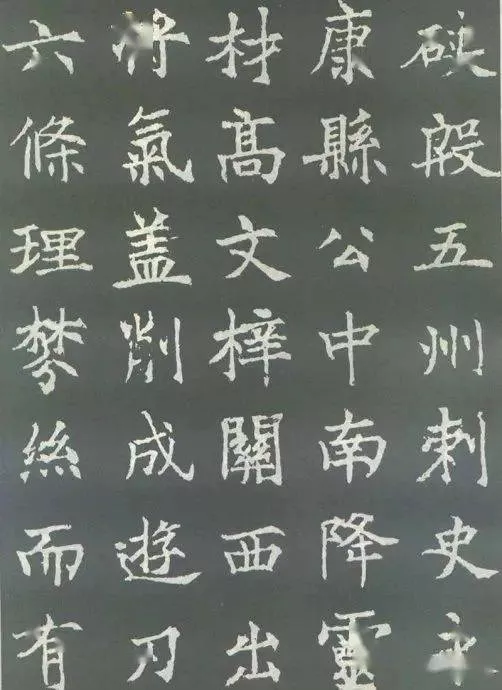 硤殷五州刺史永
康縣公中南降靈
材髙文梓關西出
將氣盖削成遊刃
六條理棼絲而有